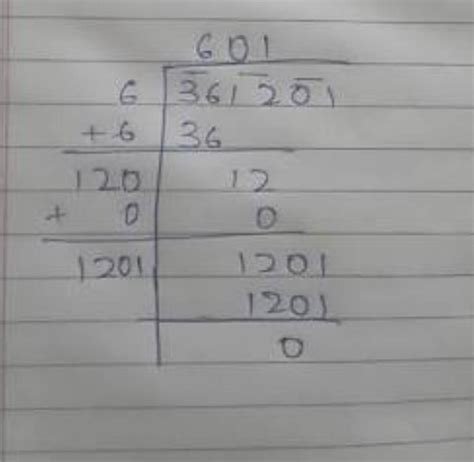 601
6 361201
+6 36
120 12
+ 0 0
1201 1201
1201
0